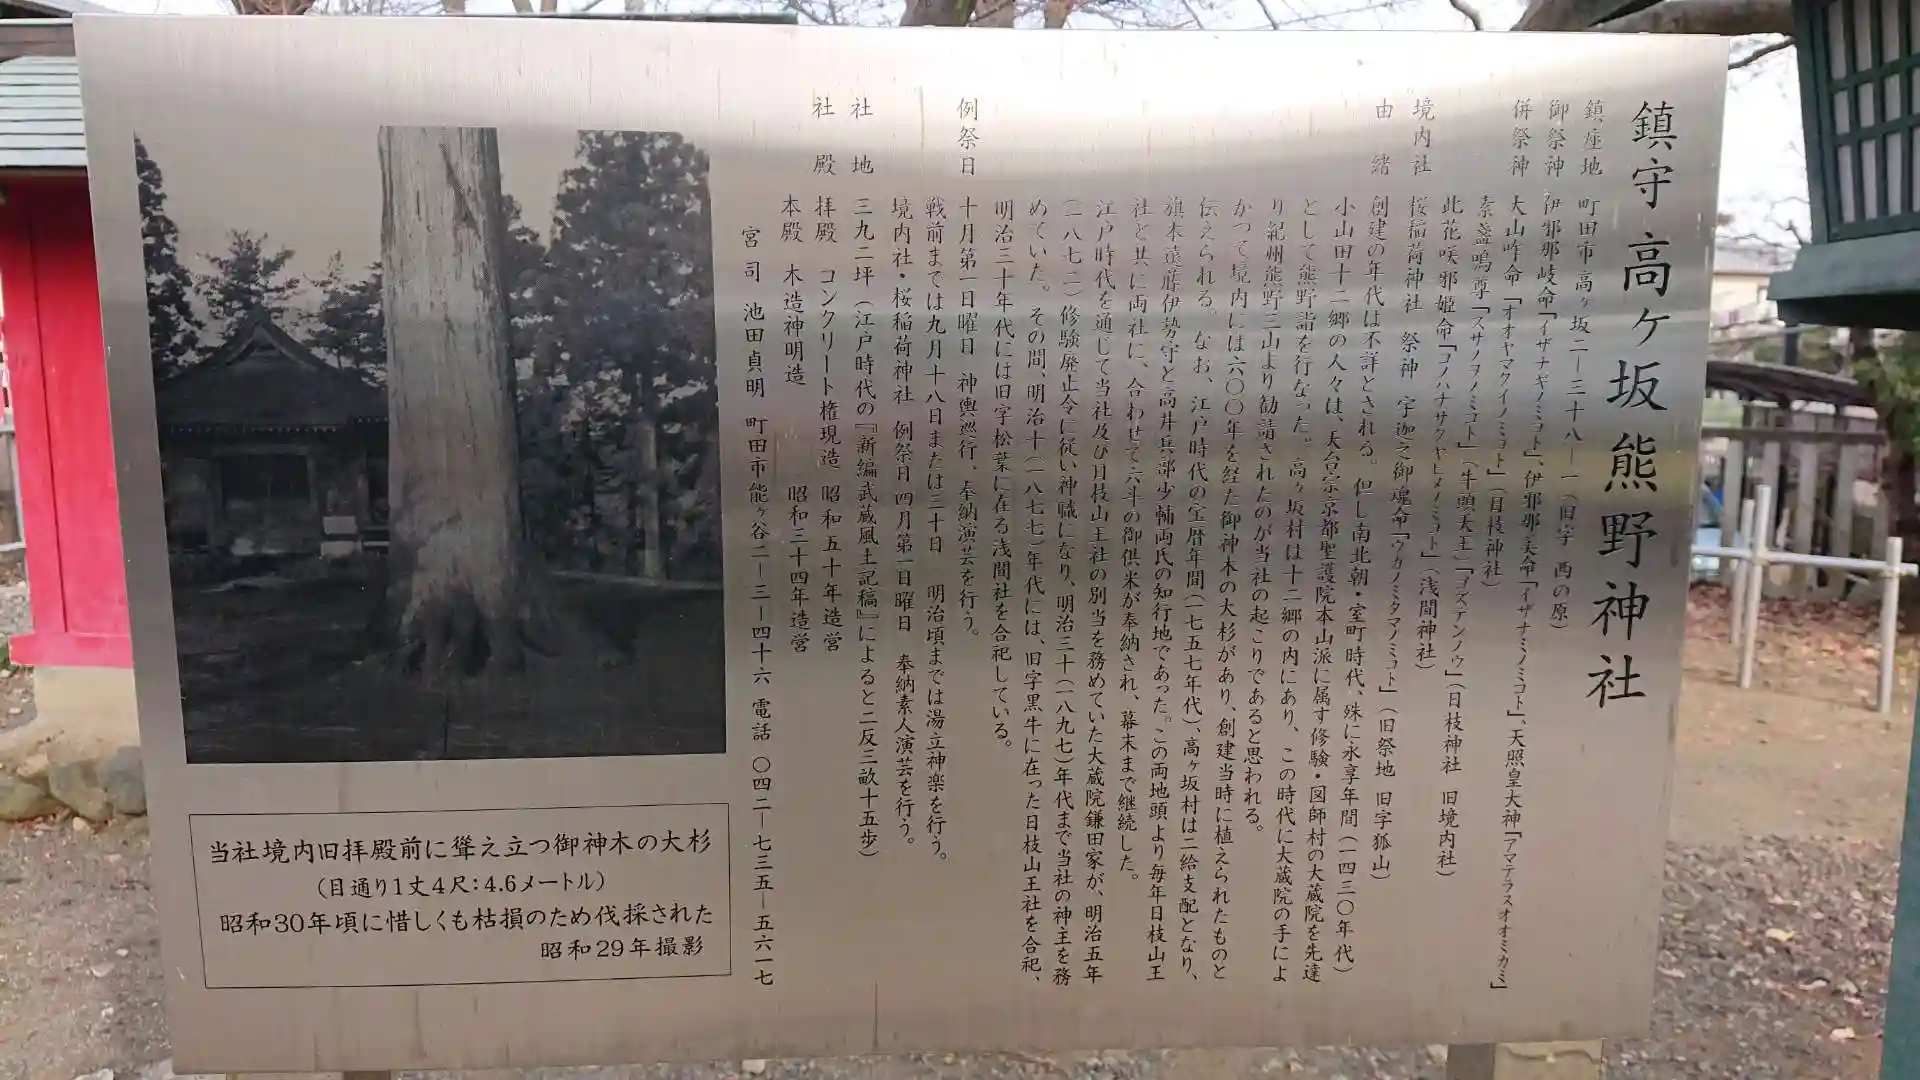 鎮守 高ヶ坂熊野神社
鎮座地 町田市高ヶ坂二ー三十八ー一(旧字 西の原)
御祭神 伊邪那岐命「イザナギノミコト」、伊邪那美命「イザナミノミコト」、天照皇大神「アマテラスオオミカミ」
併祭神 大山咋命「オオヤマクイノミコト」(日枝神社)
素盞嗚尊「スサノヲノミコト」(牛頭天王)「ゴズテンノウ」(日枝神社 旧境内社)
此花咲邪姫命「コノハナサクヤヒメノミコト」(浅間神社)
境内社 桜稲荷神社 祭神 宇迦之御魂命「ウカノミタマノミコト」(旧祭地 旧字狐山)
由緒 創建の年代は不詳とされる。但し南北朝・室町時代、殊に永享年間(一四三〇年代)
小山田十二郷の人々は、天台宗京都聖護院本山派に属す修験・図師村の大蔵院を先達
として熊野詣を行なった。高ヶ坂村は十二郷の内にあり、この時代に大蔵院の手によ
り紀州熊野三山より勧請されたのが当社の起こりであると思われる。
かつて境内には六〇〇年を経た御神木の大杉があり、創建当時に植えられたものと
伝えられる。なお、江戸時代の宝暦年間(一七五七年代)、高ヶ坂村は二給支配となり、
旗本遠藤伊勢守と高井兵部少輔両氏の知行地であった。この両地頭より毎年日枝山王
社と共に両社に、合わせて六斗の御供米が奉納され、幕末まで継続した。
江戸時代を通じて当社及び日枝山王社の別当を務めていた大蔵院鎌田家が、明治五年
(一八七二)修験廃止令に従い神職になり、明治三十(一八九七)年代まで当社の神主を務
めていた。その間、明治十(一八七七)年代には、旧字黒牛に在った日枝山王社を合祀、
明治三十年代には旧字松葉に在る浅間社を合祀している。
例祭日 十月第一日曜日 神輿巡行、奉納演芸を行う。
戦前までは九月十八日または三十日 明治頃までは湯立神楽を行う。
境内社・桜稲荷神社 例祭日 四月第一日曜日 奉納素人演芸を行う。
社地 三九二坪(江戸時代の『新編武蔵風土記稿』によると二反三畝十五歩)
社殿 拝殿 コンクリート権現造 昭和五十年造営
本殿 木造神明造 昭和三十四年造営
宮司 池田貞明 町田市能ヶ谷二ー三ー四十六 電話 〇四二ー七三五ー五六一七
当社境内旧拝殿前に聳え立つ御神木の大杉
(目通り1丈4尺:4.6メートル)
昭和30年頃に惜しくも枯損のため伐採された
昭和29年撮影